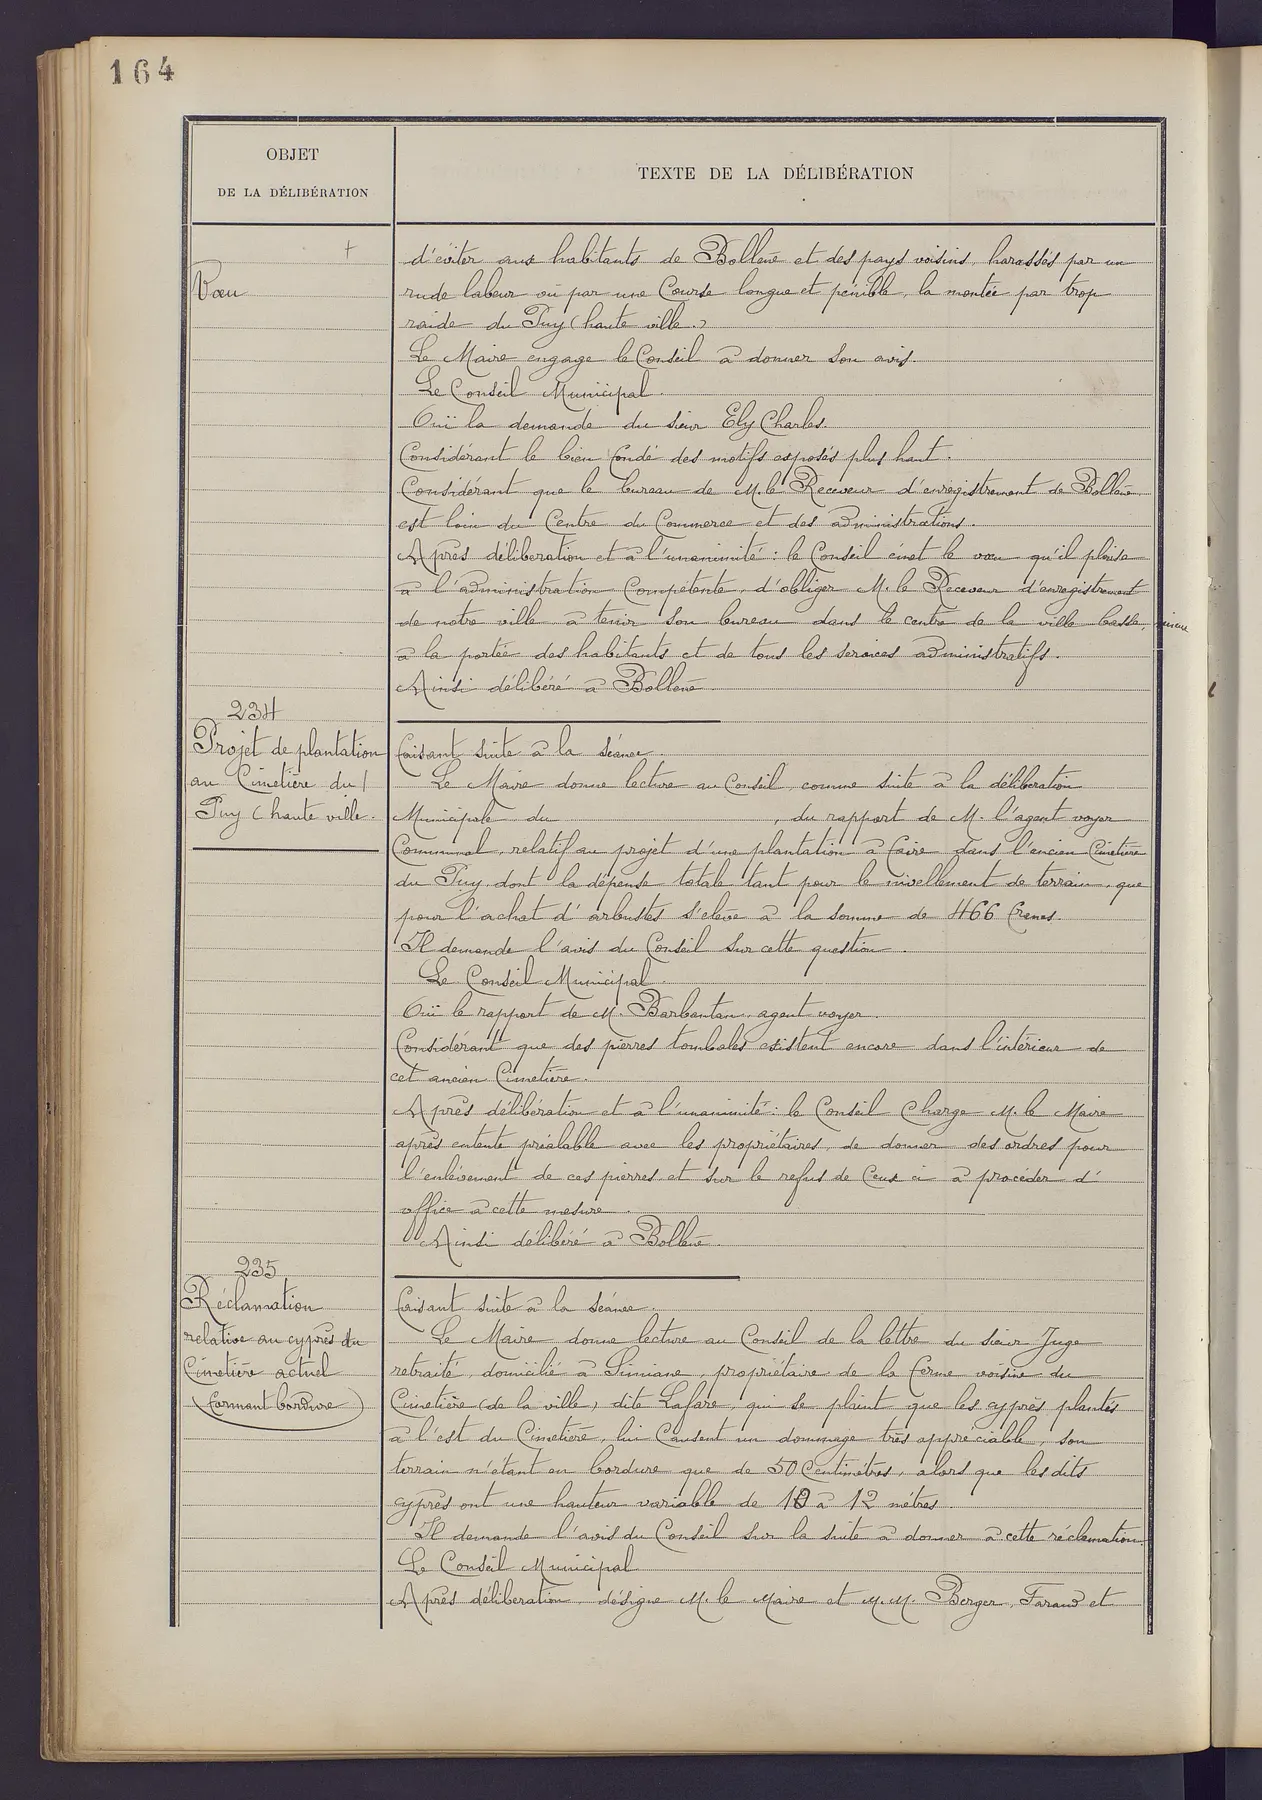 164
OBJET
DE LA DÉLIBÉRATION
TEXTE DE LA DÉLIBÉRATION
+
Vœu
d'éviter aux habitants de Bollène et des pays voisins, harassés par un
rude labeur ou par une Course longue et pénible, la montée par trop
raide du Puy (haute ville.)
Le Maire engage le Conseil à donner son avis.
Le Conseil Municipal.
Ouï la demande du sieur Ely Charles.
Considérant le bien fondé des motifs exposés plus haut.
Considérant que le bureau de M. le Receveur d'enregistrement de Bollène
est loin du Centre du Commerce et des administrations.
Après délibération et à l'unanimité : le Conseil émet le vœu qu'il plaise
à l'administration Compétente, d'obliger M. le Receveur d'enregistrement
de notre ville à tenir son bureau dans le centre de la ville basse,
à la portée des habitants et de tous les services administratifs.
Ainsi délibéré à Bollène.
234
Projet de plantation
au Cimetière du
Puy (haute ville.
Faisant suite à la séance.
Le Maire donne lecture au Conseil, comme suite à la délibération
Municipale du , du rapport de M. l'agent voyer
Communal, relatif au projet d'une plantation à faire dans l'ancien Cimetière
du Puy, dont la dépense totale tant pour le nivellement de terrain, que
pour l'achat d'arbustes s'élève à la somme de 466 francs.
Il demande l'avis du Conseil sur cette question.
Le Conseil Municipal.
Ouï le rapport de M. Barbantan, agent voyer.
Considérant que des pierres tombales existent encore dans l'intérieur de
cet ancien Cimetière.
Après délibération et à l'unanimité : le Conseil Charge M. le Maire
après entente préalable avec les propriétaires, de donner des ordres pour
l'enlèvement de ces pierres et sur le refus de Ceux ci à procéder d'
office à cette mesure.
Ainsi délibéré à Bollène.
235
Réclamation
relative au cyprès du
Cimetière actuel
(formant bordure)
Faisant suite à la séance.
Le Maire donne lecture au Conseil de la lettre du sieur Juge
retraité, domicilié à Simiane, propriétaire de la ferme voisine du
Cimetière (de la ville), dite Lafare, qui se plaint que les cyprès plantés
à l'est du Cimetière, lui Causent un dommage très appréciable, son
terrain n'étant en bordure que de 50 Centimètres, alors que les dits
cyprès ont une hauteur variable de 10 à 12 mètres
Il demande l'avis du Conseil sur la suite à donner à cette réclamation.
Le Conseil Municipal
Après délibération, désigne M. le Maire et M.M. Berger, Faraud et